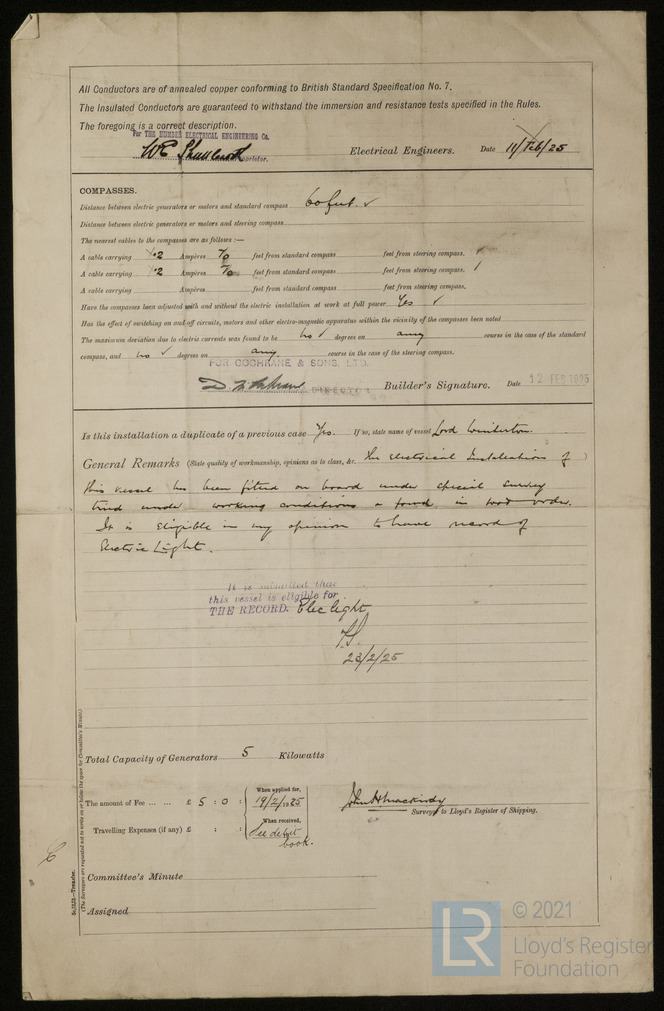 All Conductors are of annealed copper conforming to British Standard Specification No. 7.
The Insulated Conductors are guaranteed to withstand the immersion and resistance tests specified in the Rules.
The foregoing is a correct description.
For THE HUMBER ELECTRICAL ENGINEERING Co.
Proprietor. Electrical Engineers. Date 11/Feb/25
COMPASSES.
Distance between electric generators or motors and standard compass 60 feet. ✓
Distance between electric generators or motors and steering compass
The nearest cables to the compasses are as follows:—
A cable carrying .2 Ampères 7/0 feet from standard compass feet from steering compass.
A cable carrying .2 Ampères 7/0 feet from standard compass feet from steering compass.
A cable carrying Ampères feet from standard compass feet from steering compass.
Have the compasses been adjusted with and without the electric installation at work at full power Yes ✓
Has the effect of switching on and off circuits, motors and other electro-magnetic apparatus within the vicinity of the compasses been noted
The maximum deviation due to electric currents was found to be no ✓ degrees on any course in the case of the standard
compass, and no ✓ degrees on any course in the case of the steering compass.
FOR COCHRANE & SONS, LTD.
DIRECTOR Builder's Signature. Date 12 FEB 1925
Is this installation a duplicate of a previous case Yes. If so, state name of vessel Lord Winterton.
General Remarks (State quality of workmanship, opinions as to class, &c. The Electrical Installation of )
this vessel has been fitted on board under special survey
tried under working conditions & found in good order.
It is eligible in my opinion to have record of
Electric Light.
It is submitted that
this vessel is eligible for
THE RECORD. Elec light
23/2/25
Total Capacity of Generators 5 Kilowatts
The amount of Fee ... ... £ 5 : 0 :
When applied for,
19/2/1925
Travelling Expenses (if any) £ : :
When received,
See debit
book.
Surveyor to Lloyd's Register of Shipping.
Committee's Minute
Assigned
(The Surveyors are requested not to write on or below the space for Committee's Minute.)
© 2021
LR
Lloyd's Register
Foundation